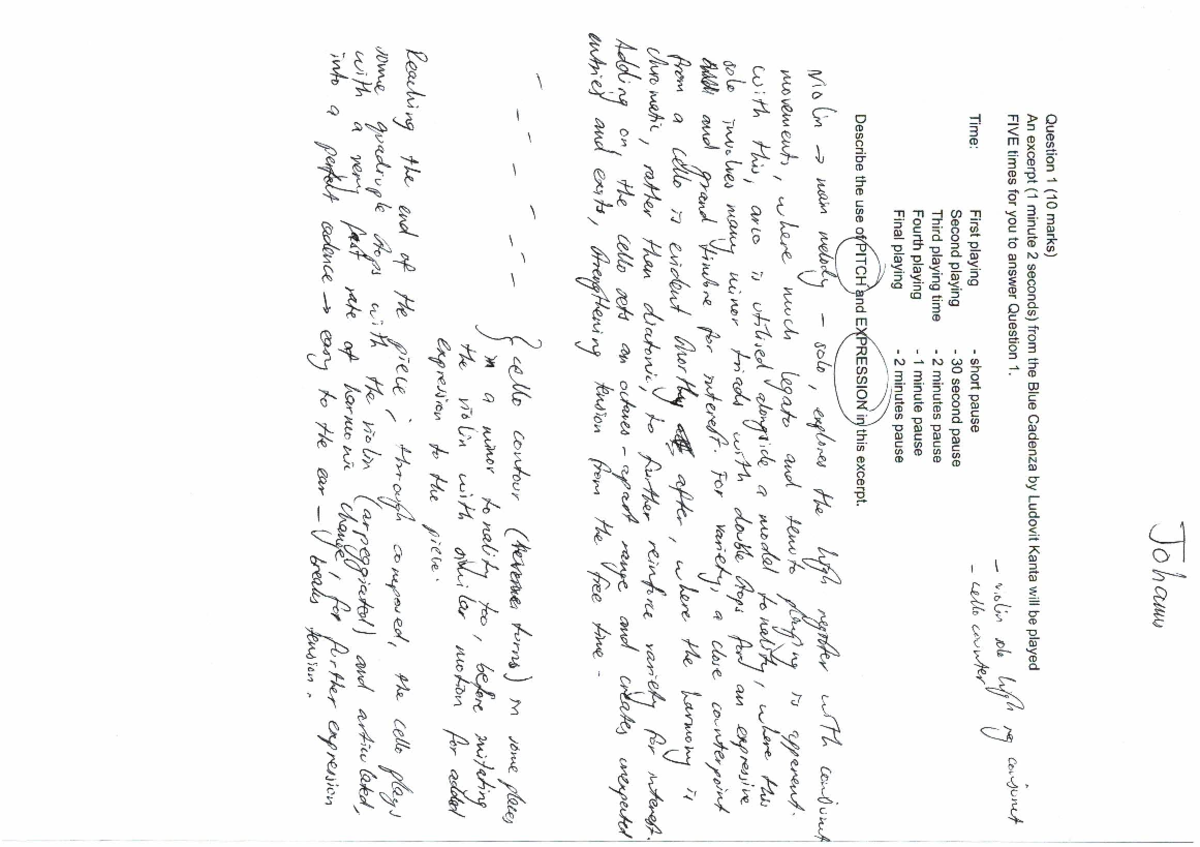 Johannus
Question 1 (10 marks)
An excerpt (1 minute 2 seconds) from the Blue Cadenza by Ludovit Kanta will be played
FIVE times for you to answer Question 1.
- violin solo high reg conjunct
- cello counter
Time: First playing - short pause
Second playing - 30 second pause
Third playing time - 2 minutes pause
Fourth playing - 1 minute pause
Final playing - 2 minutes pause
Describe the use of PITCH and EXPRESSION in this excerpt.
Violin → main melody - solo, explores the high register with conjunct
movements, where much legato and tenuto playing is apparent.
with this, arco is utilised alongside a model tonality, where this
solo involves many minor triads with double stops for an expressive
and grand timbre for interest. For variety, a close counterpoint
from a cello is evident shortly after, where the harmony is
chromatic, rather than diatonic, to further reinforce variety for interest.
Adding on, the cello gets an octaves-apart range and creates unexpected
entries and exits, strengthening tension from the free time -
{ cello contour (turns) in some places
in a minor tonality too, before imitating
the violin with similar motion for added
expression to the piece.
Reaching the end of the piece, through composed, the cello plays
some quadruple stops with the violin (arpeggiated) and articulated,
with a very fast rate of harmonic change, for further expression
into a perfect cadence → easy to the ear - breaks tension.